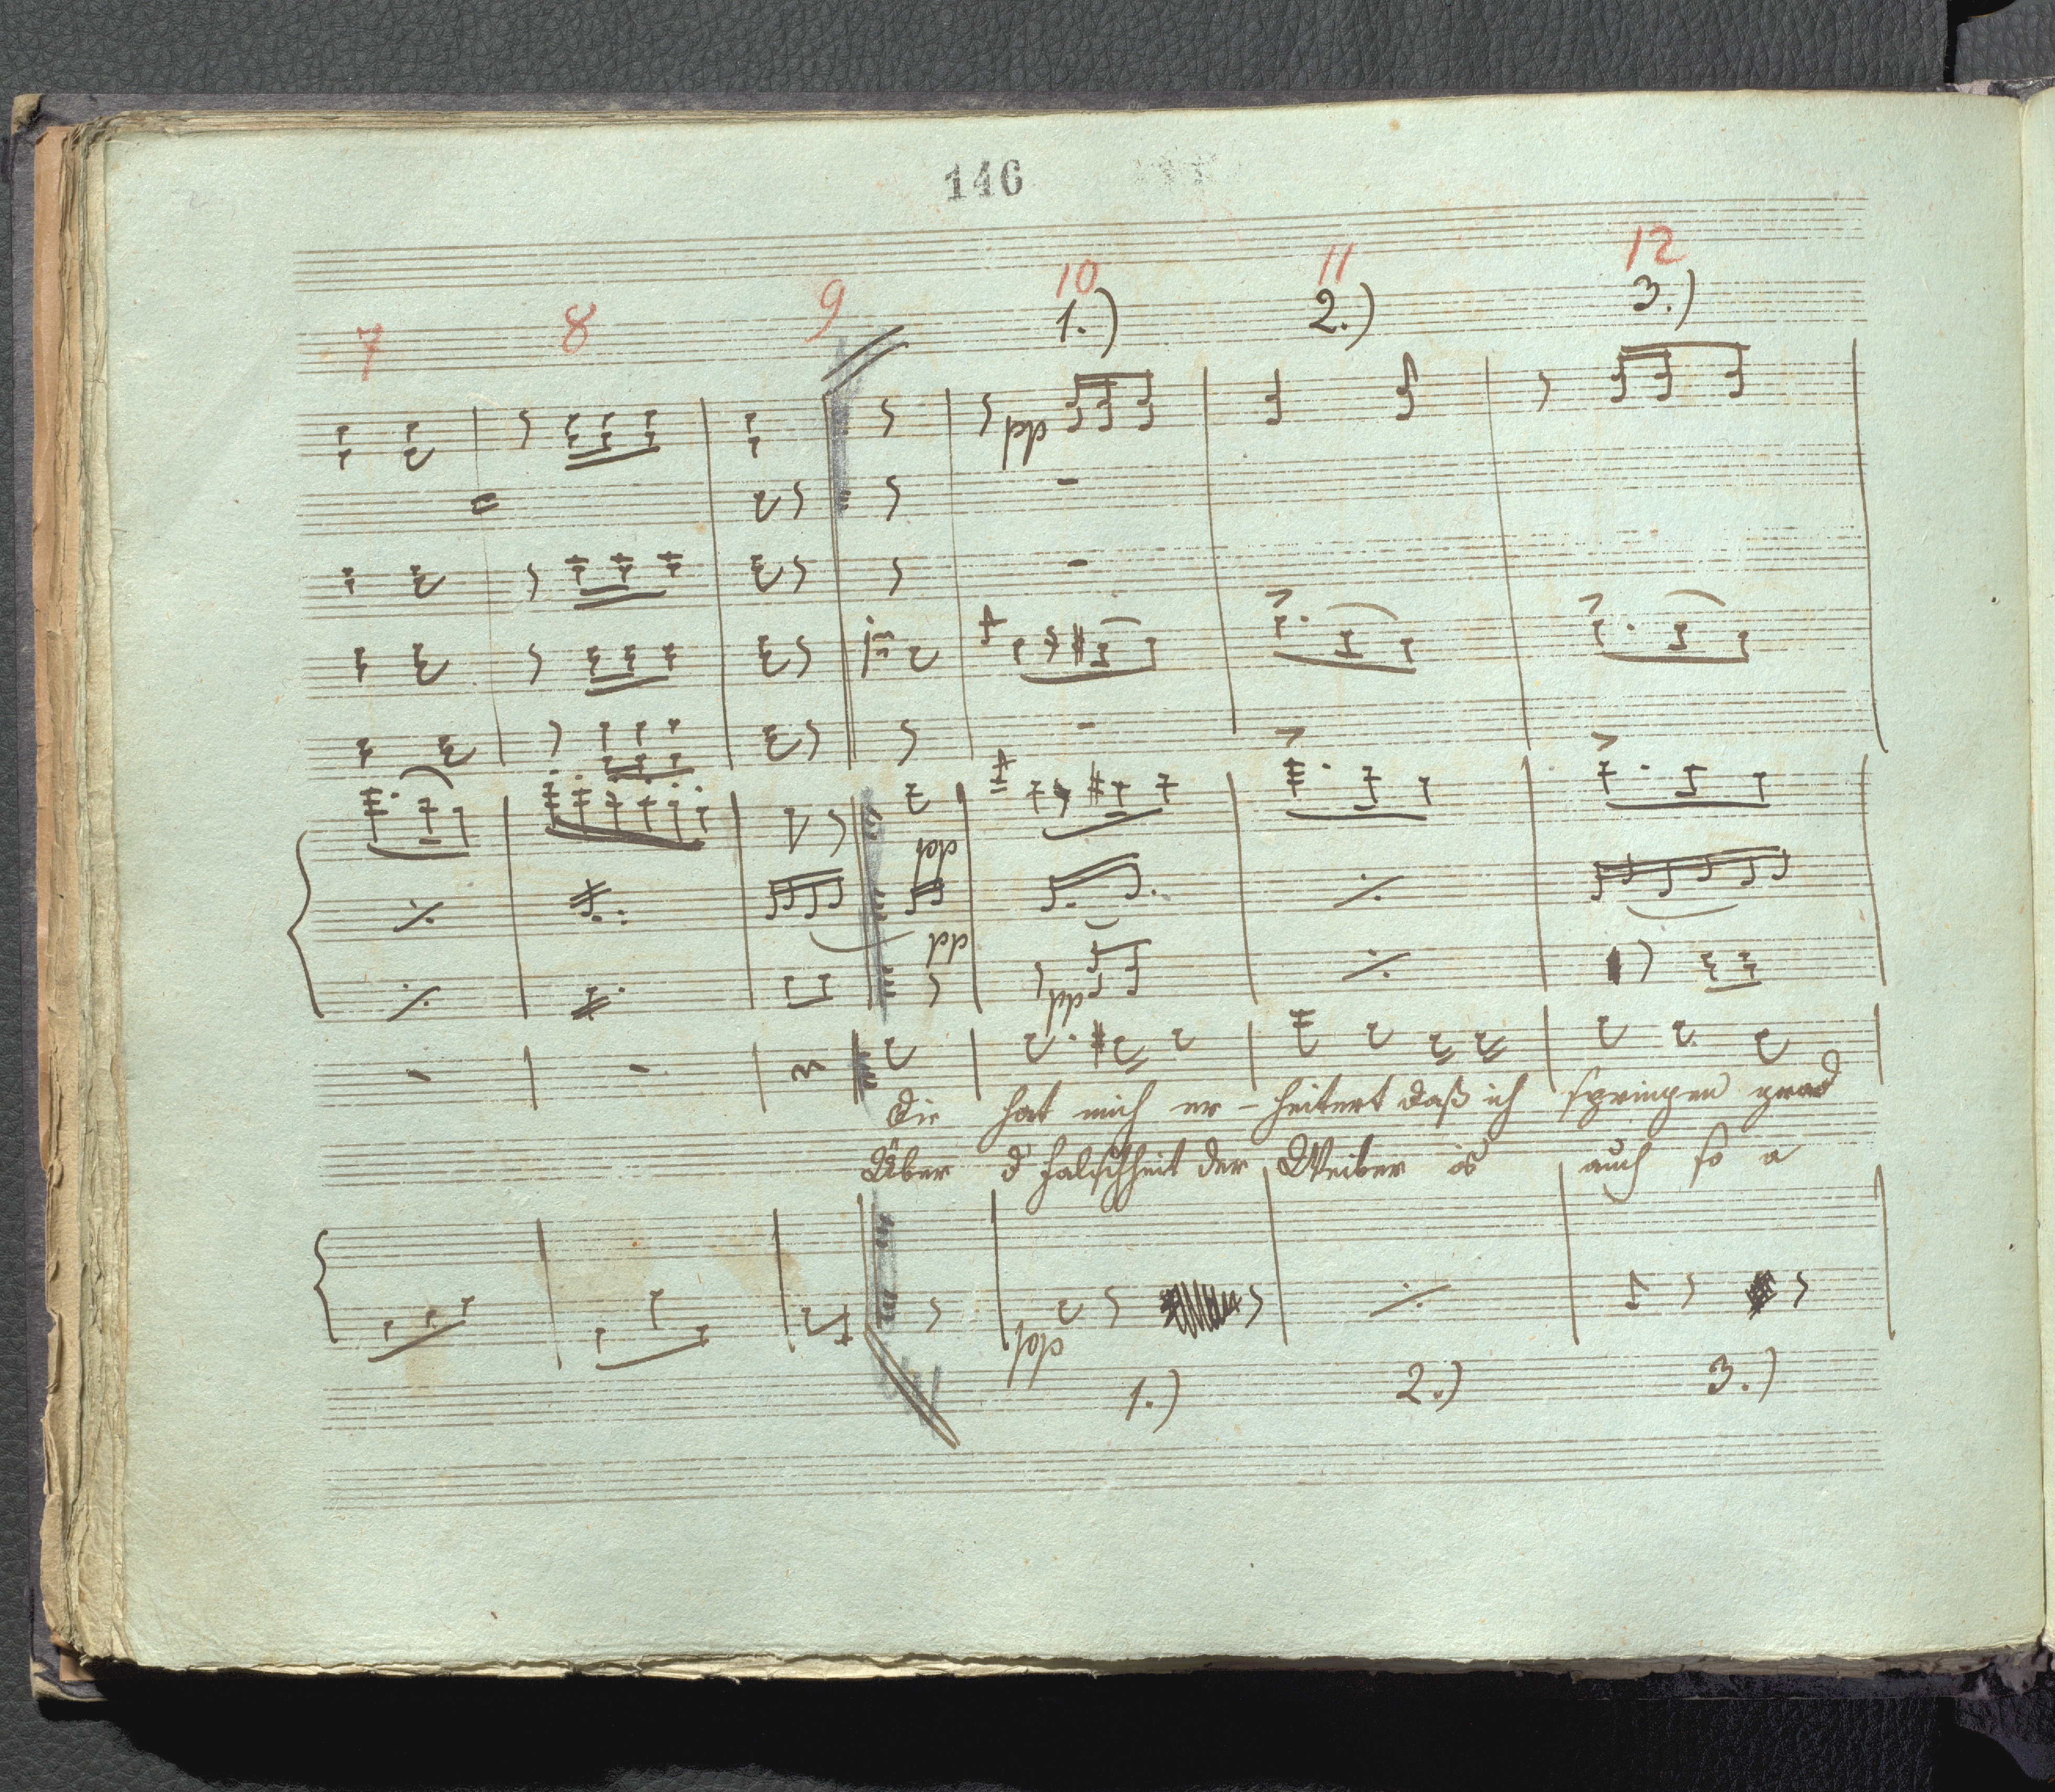 146
7 8 9 10 11 12
1.) 2.) 3.)
pp
pp
pp
pp
Die hat mich er - heitert daß ich springen grad
Über d' Falschheit der Weiber is auch so a
pp
1.) 2.) 3.)